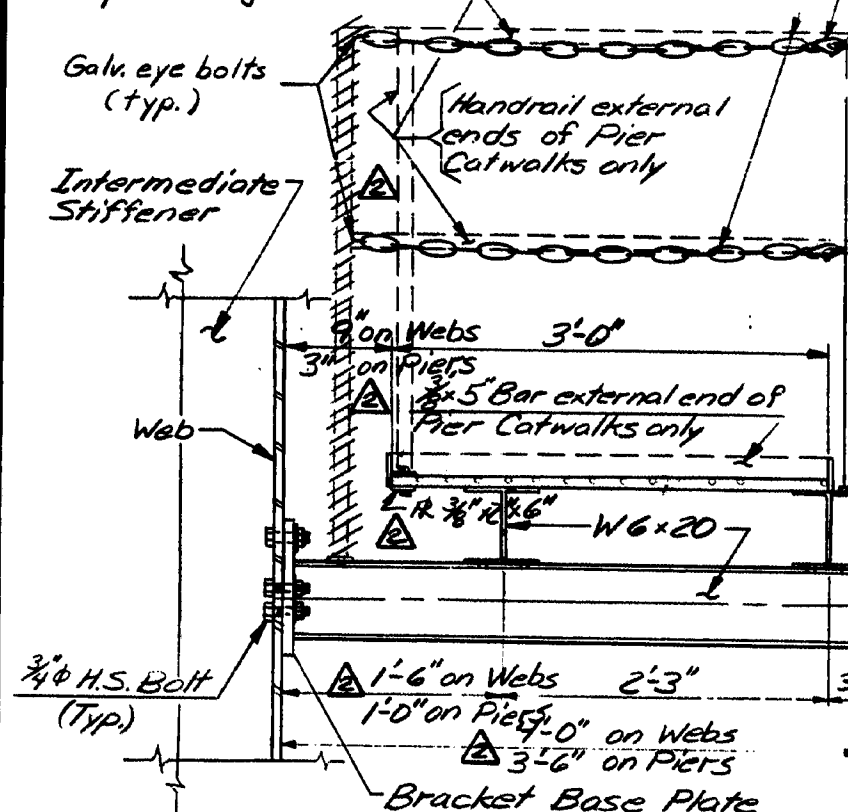 Galv. eye bolts
(typ.)
Handrail external
ends of Pier
Catwalks only
2
Intermediate
Stiffener
9" on Webs
3'-0"
3" on Piers
2
3/8 x 5" Bar external end of
Pier Catwalks only
Web
2
W 6 x 20
3/4" ϕ H.S. Bolt
(Typ.)
2
1'-6" on Webs
2'-3"
1'-0" on Piers
2
4'-0" on Webs
3'-6" on Piers
Bracket Base Plate